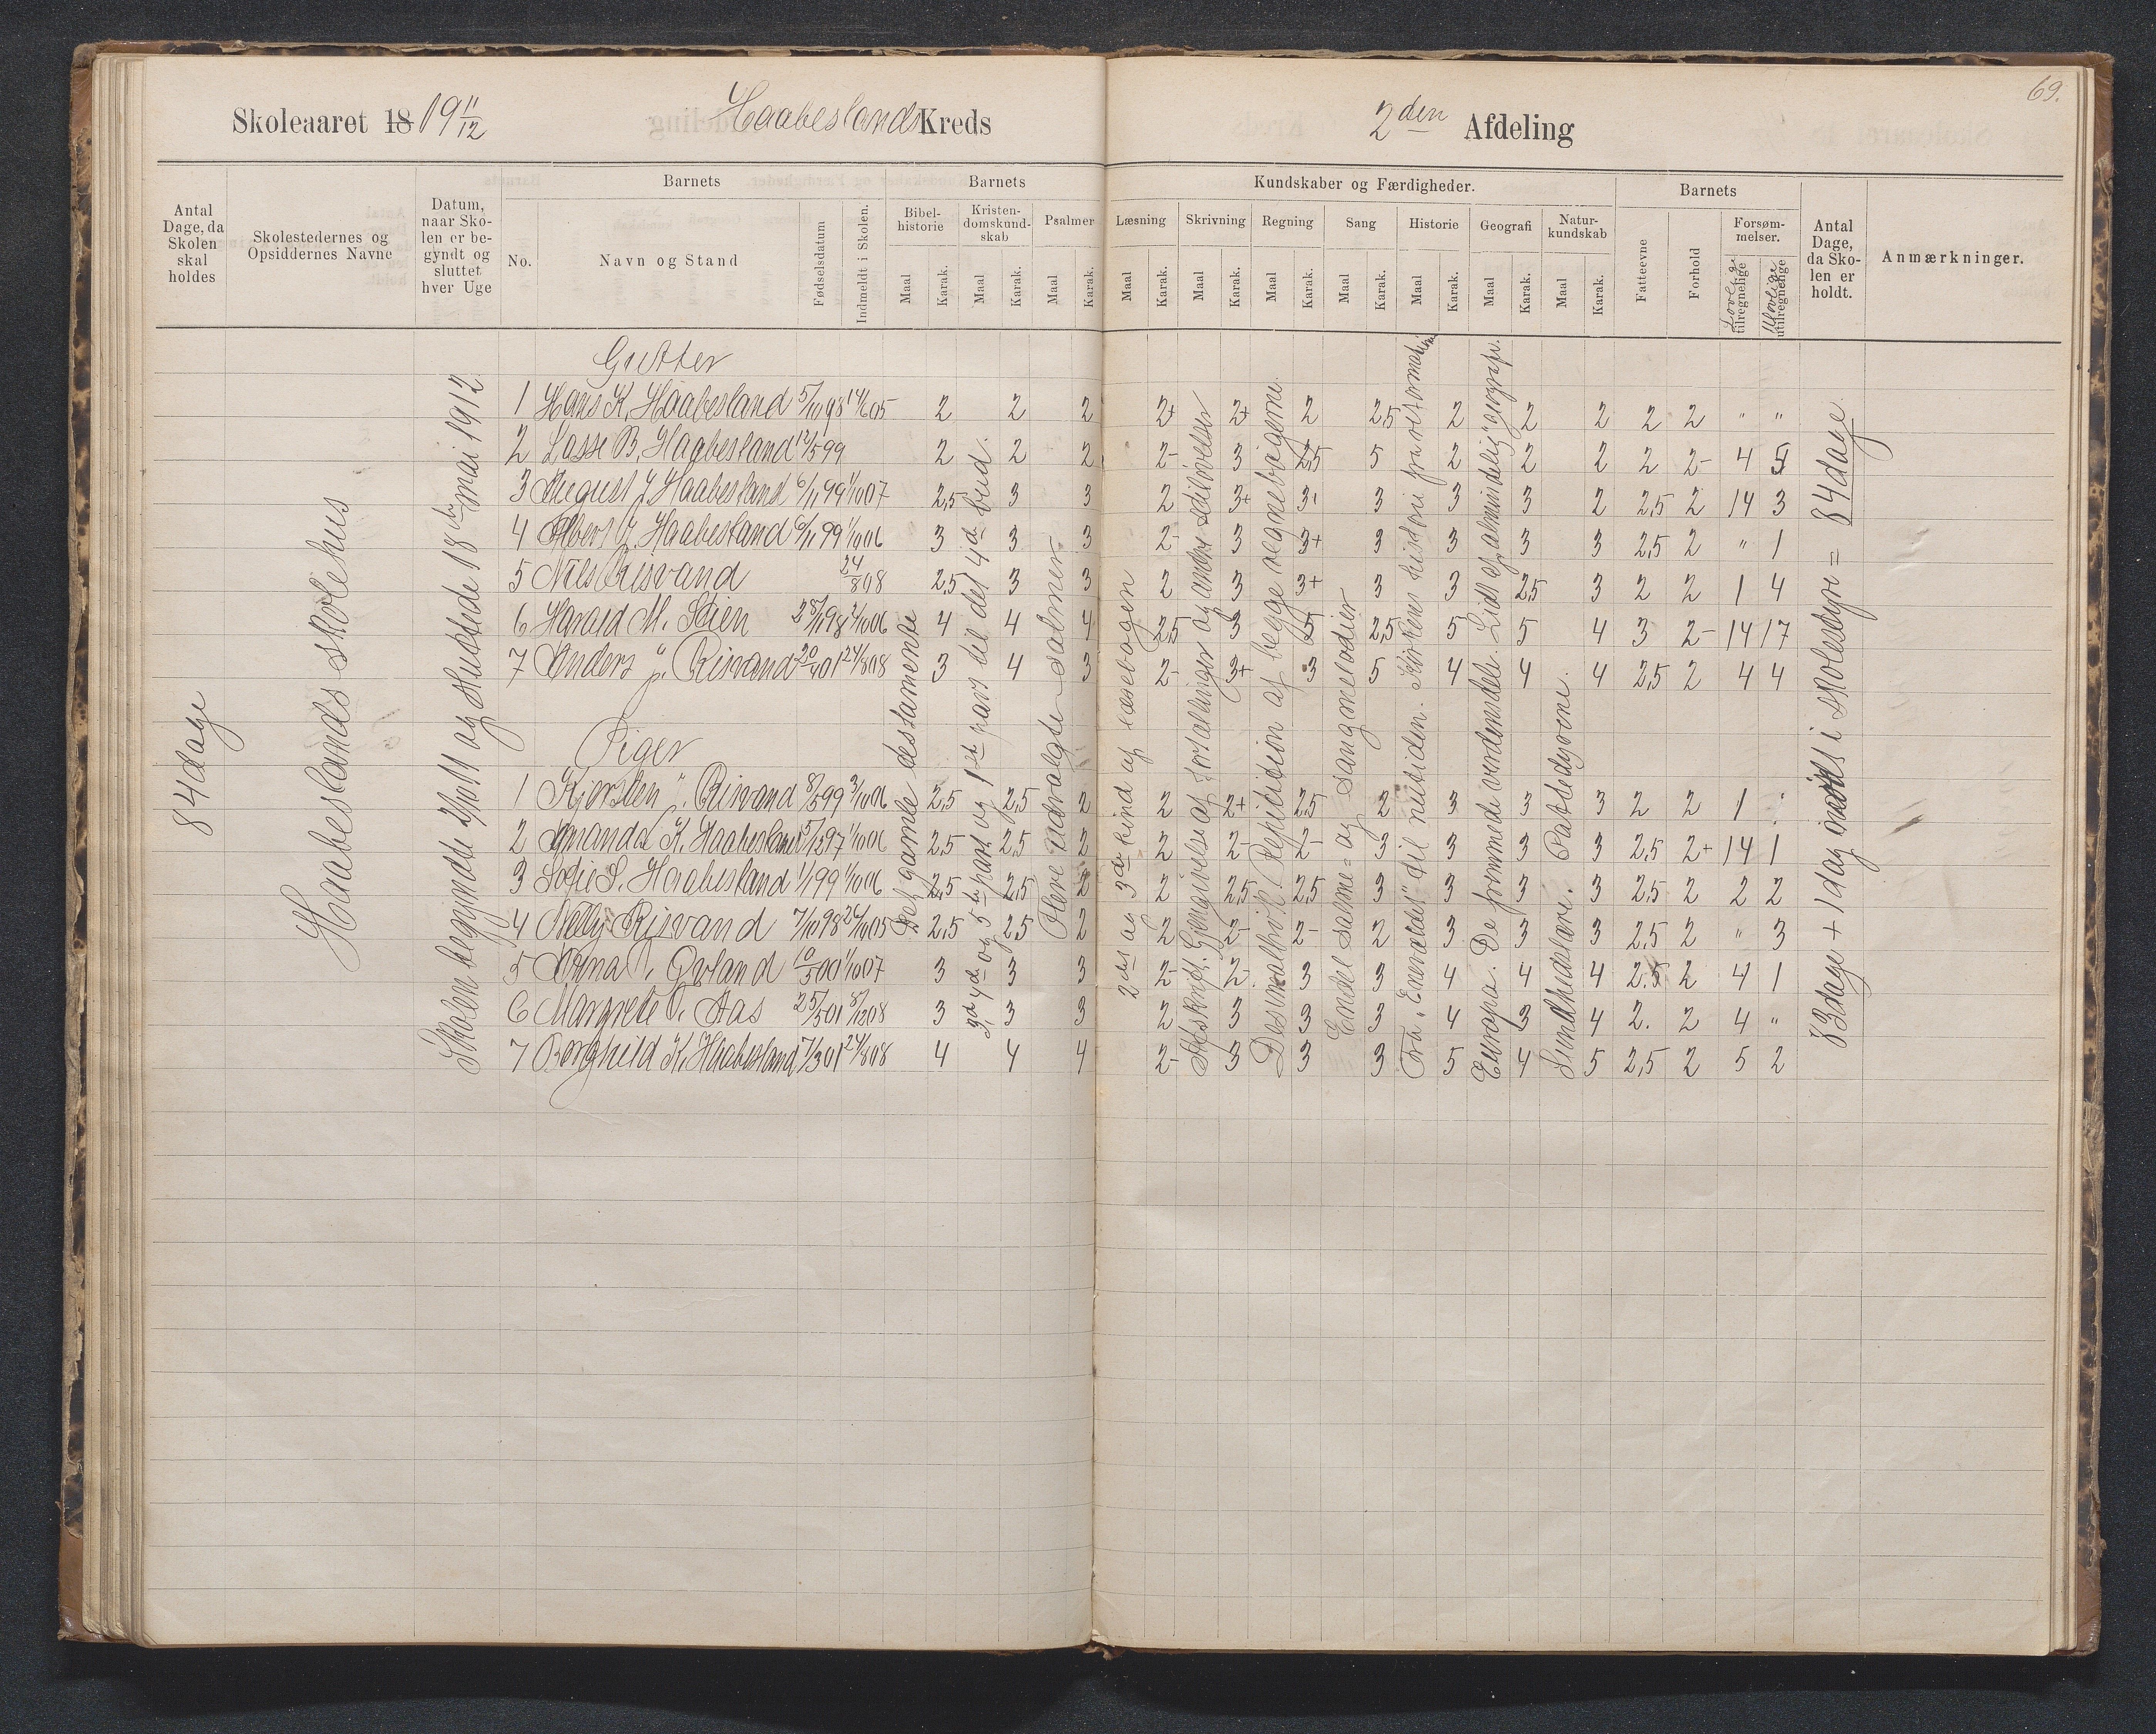 69.
Skoleaaret 18 19 11/12 Haabeslands Kreds 2den Afdeling
Antal Dage, da Skolen skal holdes
Skolestedernes og Opsiddernes Navne
Datum, naar Skolen er begyndt og sluttet hver Uge
Barnets
No.
Navn og Stand
Fødselsdatum
Indmeldt i Skolen.
Barnets
Bibelhistorie
Kristendomskundskab
Psalmer
Maal Karak. Maal Karak. Maal Karak.
Kundskaber og Færdigheder.
Læsning Skrivning Regning Sang Historie Geografi Naturkundskab
Maal Karak. Maal Karak. Maal Karak. Maal Karak. Maal Karak. Maal Karak. Maal Karak.
Barnets
Fatteevne
Forhold
Forsømmelser.
Lovlige tilregnelige
Ulovlige utilregnelige
Antal Dage, da Skolen er holdt.
Anmærkninger.
84 dage
Haabeslands skolehus
Skolen begyndte 2/10 11 og sluttede 18de mai 1912
Gutter
1 Hans K. Haabesland 5/10 98 14/6 05 2 2 2 2+ 2+ 2 2,5 2 2 2 2 2 " "
2 Lasse B. Haabesland 12/5 99 2 2 2 2- 3 2,5 5 2 2 2 2 2- 4 5
3 August J. Haabesland 6/11 99 1/10 07 2,5 3 3 2 3+ 3 3 3 3 2 2,5 2 14 3
4 Albert J. Haabesland 6/11 99 1/10 06 3 3 3 2- 3 3+ 3 3 3 3 2,5 2 " 1
5 Nils Risvand 24/8 08 2,5 3 3 2 3 3+ 3 3 2,5 3 2 2 1 4
6 Harald M. Stien 28/11 98 2/10 06 4 4 4 2,5 3 5 2,5 5 5 4 3 2- 14 17
7 Anders J. Risvand 20/4 01 24/8 08 3 4 3 2- 3+ 3 5 4 4 4 2,5 2 4 4
Piger
1 Kjersten ". Risvand 8/5 99 3/10 06 2,5 2,5 2 2 2+ 2,5 2 3 3 3 2 2 1
2 Amanda K. Haabesland 15/5 97 1/10 06 2,5 2,5 2 2 2- 2- 3 3 3 3 2,5 2+ 14 1
3 Sofie S. Haabesland 1/1 99 1/10 06 2,5 2,5 2 2 2,5 2,5 3 3 3 3 2,5 2 2 2
4 Nelly Risvand 7/10 98 26/10 05 2,5 2,5 2 2 2- 2- 2 3 3 3 2,5 2 " 3
5 Anna T. Øvland 10/5 00 1/10 07 3 3 3 2- 2- 3 3 4 4 4 2.5 2 4 1
6 Margrete O. Aas 25/5 01 8/12 08 3 3 3 2 3 3 3 4 3 4 2. 2 4 "
7 Borghild K. Haabesland 7/3 01 24/8 08 4 4 4 2- 3 3 3 5 4 5 2,5 2 5 2
Det gamle testamente
3de, 4de og 5te part og 1ste part til det 4de bud.
Flere udvalgte salmer
2det og 3die bind af læsebogen
Afskrift. Gjengivelse af fortællinger og andre stiløvelser
Desimalbrøk. Repitition af begge regnebøgerne.
Endel salme- og sangmelodier
Fra "Enevældet" til nutiden. Kirkens historie fra reformationen.
Europa. De fremmede verdensdele. Lidt af "almindelig" geografi.
Sundhedslære. Pattedyrene.
83 dage + 1 dag i skolestyr = 84 dage